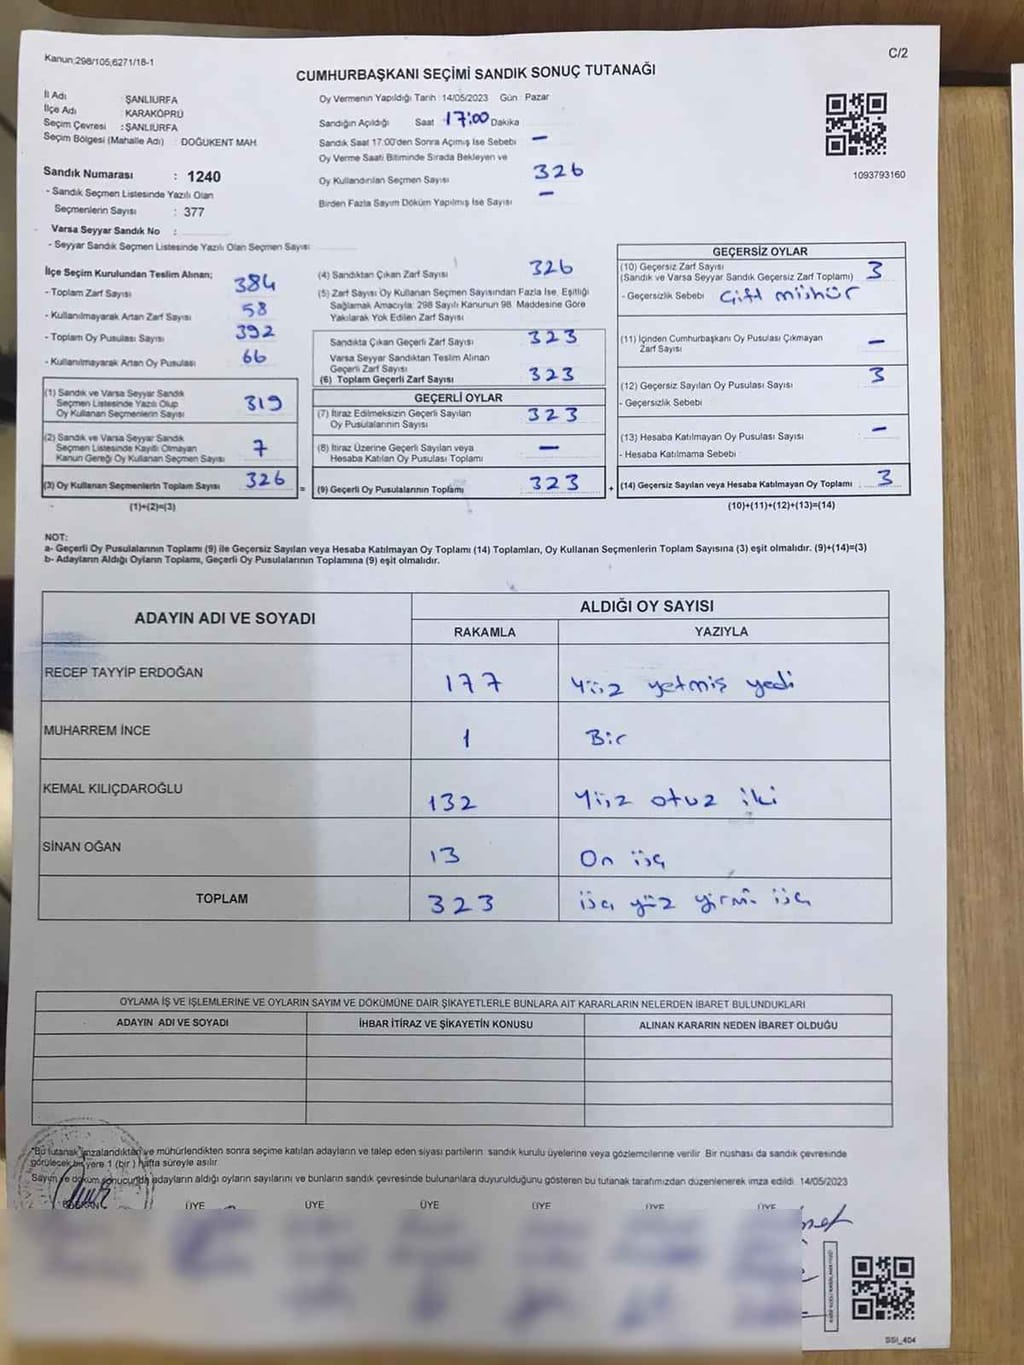 Kanun:298/105,6271/18-1
C/2
CUMHURBAŞKANI SEÇİMİ SANDIK SONUÇ TUTANAĞI
İl Adı : ŞANLIURFA
İlçe Adı : KARAKÖPRÜ
Seçim Çevresi : ŞANLIURFA
Seçim Bölgesi (Mahalle Adı) : DOĞUKENT MAH
Sandık Numarası : 1240
- Sandık Seçmen Listesinde Yazılı Olan
Seçmenlerin Sayısı : 377
Varsa Seyyar Sandık No :
- Seyyar Sandık Seçmen Listesinde Yazılı Olan Seçmen Sayısı
Oy Vermenin Yapıldığı Tarih 14/05/2023 Gün Pazar
Sandığın Açıldığı Saat 17:00 Dakika
Sandık Saat 17:00'den Sonra Açımış İse Sebebi —
Oy Verme Saati Bitiminde Sırada Bekleyen ve
Oy Kullandırılan Seçmen Sayısı 326
Birden Fazla Sayım Döküm Yapılmış İse Sayısı —
1093793160
İlçe Seçim Kurulundan Teslim Alınan;
- Toplam Zarf Sayısı 384
- Kullanılmayarak Artan Zarf Sayısı 58
- Toplam Oy Pusulası Sayısı 392
- Kullanılmayarak Artan Oy Pusulası 66
(1) Sandık ve Varsa Seyyar Sandık
Seçmen Listesinde Yazılı Olup
Oy Kullanan Seçmenlerin Sayısı 319
(2) Sandık ve Varsa Seyyar Sandık
Seçmen Listesinde Kayıtlı Olmayan
Kanun Gereği Oy Kullanan Seçmen Sayısı 7
(3) Oy Kullanan Seçmenlerin Toplam Sayısı 326
=
(1)+(2)=(3)
(4) Sandıktan Çıkan Zarf Sayısı 326
(5) Zarf Sayısı Oy Kullanan Seçmen Sayısından Fazla İse, Eşitliği
Sağlamak Amacıyla; 298 Sayılı Kanunun 98. Maddesine Göre
Yakılarak Yok Edilen Zarf Sayısı
Sandıkta Çıkan Geçerli Zarf Sayısı 323
Varsa Seyyar Sandıktan Teslim Alınan
Geçerli Zarf Sayısı
(6) Toplam Geçerli Zarf Sayısı 323
GEÇERLİ OYLAR
(7) İtiraz Edilmeksizin Geçerli Sayılan
Oy Pusulalarının Sayısı 323
(8) İtiraz Üzerine Geçerli Sayılan veya
Hesaba Katılan Oy Pusulası Toplamı —
(9) Geçerli Oy Pusulalarının Toplamı 323
+
GEÇERSİZ OYLAR
(10) Geçersiz Zarf Sayısı
(Sandık ve Varsa Seyyar Sandık Geçersiz Zarf Toplamı) 3
- Geçersizlik Sebebi Çift mühür
(11) İçinden Cumhurbaşkanı Oy Pusulası Çıkmayan
Zarf Sayısı —
(12) Geçersiz Sayılan Oy Pusulası Sayısı 3
- Geçersizlik Sebebi
(13) Hesaba Katılmayan Oy Pusulası Sayısı —
- Hesaba Katılmama Sebebi
(14) Geçersiz Sayılan veya Hesaba Katılmayan Oy Toplamı 3
(10)+(11)+(12)+(13)=(14)
NOT:
a- Geçerli Oy Pusulalarının Toplamı (9) ile Geçersiz Sayılan veya Hesaba Katılmayan Oy Toplamı (14) Toplamları, Oy Kullanan Seçmenlerin Toplam Sayısına (3) eşit olmalıdır. (9)+(14)=(3)
b- Adayların Aldığı Oyların Toplamı, Geçerli Oy Pusulalarının Toplamına (9) eşit olmalıdır.
ADAYIN ADI VE SOYADI
ALDIĞI OY SAYISI
RAKAMLA YAZIYLA
RECEP TAYYİP ERDOĞAN 177 Yüz yetmiş yedi
MUHARREM İNCE 1 Bir
KEMAL KILIÇDAROĞLU 132 Yüz otuz iki
SİNAN OĞAN 13 On üç
TOPLAM 323 üç yüz yirmi üç
OYLAMA İŞ VE İŞLEMLERİNE VE OYLARIN SAYIM VE DÖKÜMÜNE DAİR ŞİKAYETLERLE BUNLARA AİT KARARLARIN NELERDEN İBARET BULUNDUKLARI
ADAYIN ADI VE SOYADI İHBAR İTİRAZ VE ŞİKAYETİN KONUSU ALINAN KARARIN NEDEN İBARET OLDUĞU
"Bu tutanak imzalandıktan ve mühürlendikten sonra seçime katılan adayların ve talep eden siyasi partilerin sandık kurulu üyelerine veya gözlemcilerine verilir. Bir nüshası da sandık çevresinde
görülecek bir yere 1 (bir) hafta süreyle asılır.
Sayım ve döküm sonucunda adayların aldığı oyların sayılarını ve bunların sandık çevresinde bulunanlara duyurulduğunu gösteren bu tutanak tarafımızdan düzenlenerek imza edildi. 14/05/2023
BAŞKAN ÜYE ÜYE ÜYE ÜYE ÜYE ÜYE
SSİ_404